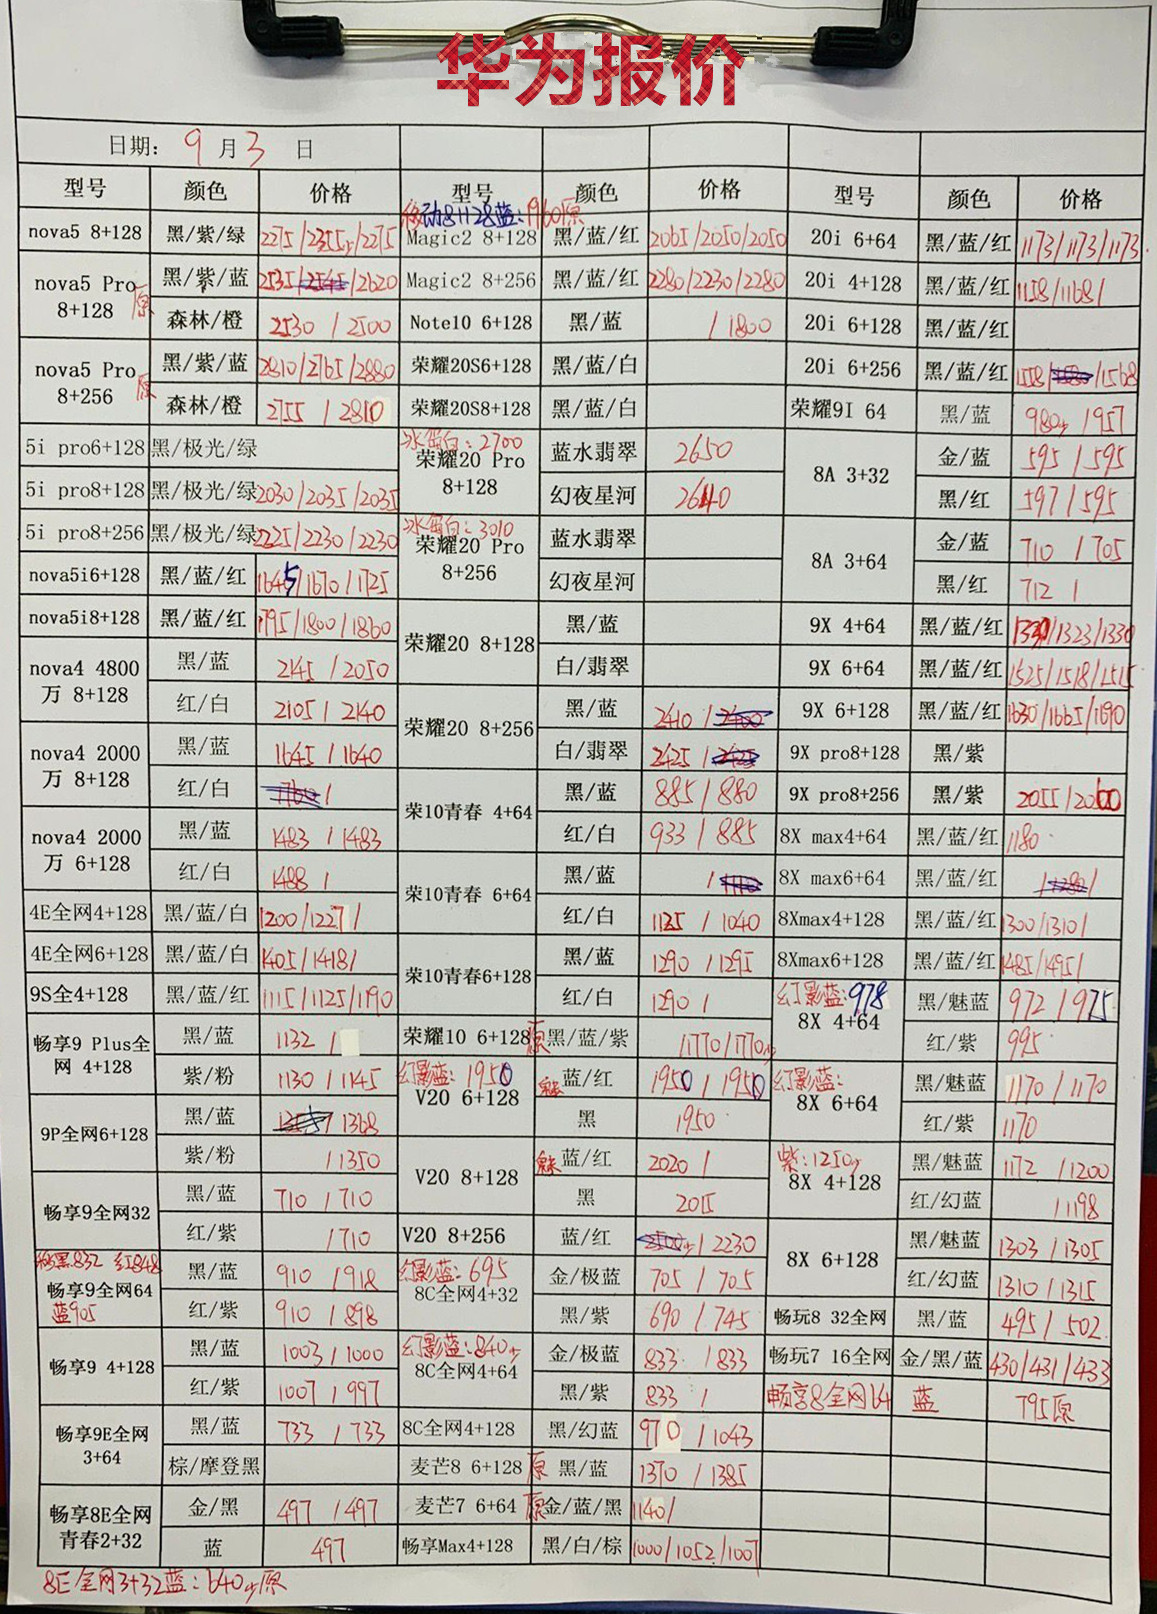 华为报价
日期： 9 月 3 日
型号 颜色 价格 型号 颜色 价格 型号 颜色 价格
移动8+128蓝：1960原
nova5 8+128 黑/紫/绿 2275/2355少/2275 Magic2 8+128 黑/蓝/红 2065/2050/2050 20i 6+64 黑/蓝/红 1173/1173/1173
nova5 Pro 8+128 原 黑/紫/蓝 2535/2545/2620 Magic2 8+256 黑/蓝/红 2280/2230/2280 20i 4+128 黑/蓝/红 1158/1168/
森林/橙 2530 / 2500 Note10 6+128 黑/蓝 / 1800 20i 6+128 黑/蓝/红
nova5 Pro 8+256 原 黑/紫/蓝 2810/2765/2880 荣耀20S6+128 黑/蓝/白 20i 6+256 黑/蓝/红 1558/ /1568
森林/橙 2755 / 2810 荣耀20S8+128 黑/蓝/白 荣耀9I 64 黑/蓝 980少 /957
5i pro6+128 黑/极光/绿 冰蛋白：2700 荣耀20 Pro 8+128 蓝水翡翠 2650 8A 3+32 金/蓝 595 /595
5i pro8+128 黑/极光/绿 2030/2035/2035 幻夜星河 2640 黑/红 597/595
5i pro8+256 黑/极光/绿 2225/2230/2230 冰蛋白：3010 荣耀20 Pro 8+256 蓝水翡翠 8A 3+64 金/蓝 710 /705
nova5i6+128 黑/蓝/红 1645/1670/1725 幻夜星河 黑/红 712 /
nova5i8+128 黑/蓝/红 1795/1800/1860 荣耀20 8+128 黑/蓝 9X 4+64 黑/蓝/红 1330/1323/1330
nova4 4800万 8+128 黑/蓝 2145 / 2050 白/翡翠 9X 6+64 黑/蓝/红 1525/1518/1515
红/白 2105 / 2140 荣耀20 8+256 黑/蓝 2410 /2400 9X 6+128 黑/蓝/红 1630/1665/1690
nova4 2000万 8+128 黑/蓝 1645 /1640 白/翡翠 2425 / 9X pro8+128 黑/紫
红/白 1760 / 荣10青春 4+64 黑/蓝 885/ 880 9X pro8+256 黑/紫 2055 /2060
nova4 2000万 6+128 黑/蓝 1483 / 1483 红/白 933 / 885 8X max4+64 黑/蓝/红 1180
红/白 1488 / 荣10青春 6+64 黑/蓝 / 8X max6+64 黑/蓝/红 /1280/
4E全网4+128 黑/蓝/白 1200/1227/ 红/白 1125 / 1040 8Xmax4+128 黑/蓝/红 1300/1310/
4E全网6+128 黑/蓝/白 1405/1418/ 荣10青春6+128 黑/蓝 1290 / 1295 8Xmax6+128 黑/蓝/红 1485/1495/
9S全4+128 黑/蓝/红 1115/1125/1190 红/白 1290 / 幻影蓝：978 8X 4+64 黑/魅蓝 972 /975
畅享9 Plus全网 4+128 黑/蓝 1132 / 荣耀10 6+128 原 黑/蓝/紫 /1770/1770少 红/紫 995
紫/粉 1130 / 1145 幻影蓝：1950 V20 6+128 魅 蓝/红 1950 / 1950 幻影蓝： 8X 6+64 黑/魅蓝 1170 / 1170
9P全网6+128 黑/蓝 / 1368 黑 1950 红/紫 1170
紫/粉 / 1350 V20 8+128 魅 蓝/红 2020 / 紫：1250少 8X 4+128 黑/魅蓝 1172 /1200
畅享9全网32 黑/蓝 710 / 710 黑 2015 红/幻蓝 / 1198
红/紫 /710 V20 8+256 蓝/红 / 2230 8X 6+128 黑/魅蓝 1303 / 1305
移黑832 红848 畅享9全网64 蓝905 黑/蓝 910 /918 幻影蓝：695 8C全网4+32 金/极蓝 705 / 705 红/幻蓝 1310 / 1315
红/紫 910 / 898 黑/紫 690 / 745 畅玩8 32全网 黑/蓝 495 / 502
畅享9 4+128 黑/蓝 1003 / 1000 幻影蓝：840少 8C全网4+64 金/极蓝 833 /833 畅玩7 16全网 金/黑/蓝 430/431/433
红/紫 1007 / 997 黑/紫 833 / 畅享8全网64 蓝 795原
畅享9E全网 3+64 黑/蓝 733 / 733 8C全网4+128 黑/幻蓝 970 / 1043
棕/摩登黑 麦芒8 6+128 原 黑/蓝 1370 / 1385
畅享8E全网青春2+32 金/黑 497 /497 麦芒7 6+64 原 金/蓝/黑 1140/
蓝 497 畅享Max4+128 黑/白/棕 1000/1052/1007
8E全网3+32蓝：640少原